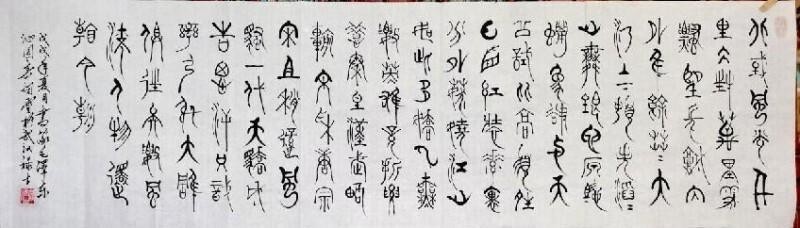 北國風光千
里冰封萬里雪
飄望長城内
外惟餘莽〻大
河上下頓失滔〻
山舞銀蛇原馳
蠟象欲與天
公試比高須晴
日看紅裝素裹
分外妖嬈江山
如此多嬌引無
數英雄競折腰
惜秦皇漢武略
輸文采唐宗
宋祖稍遜風
騷一代天驕成
吉思汗只識
彎弓射大雕
俱往矣數風
流人物還
看今朝
戊戌年夏月書 毛澤東
沁園春 雪 於武漢